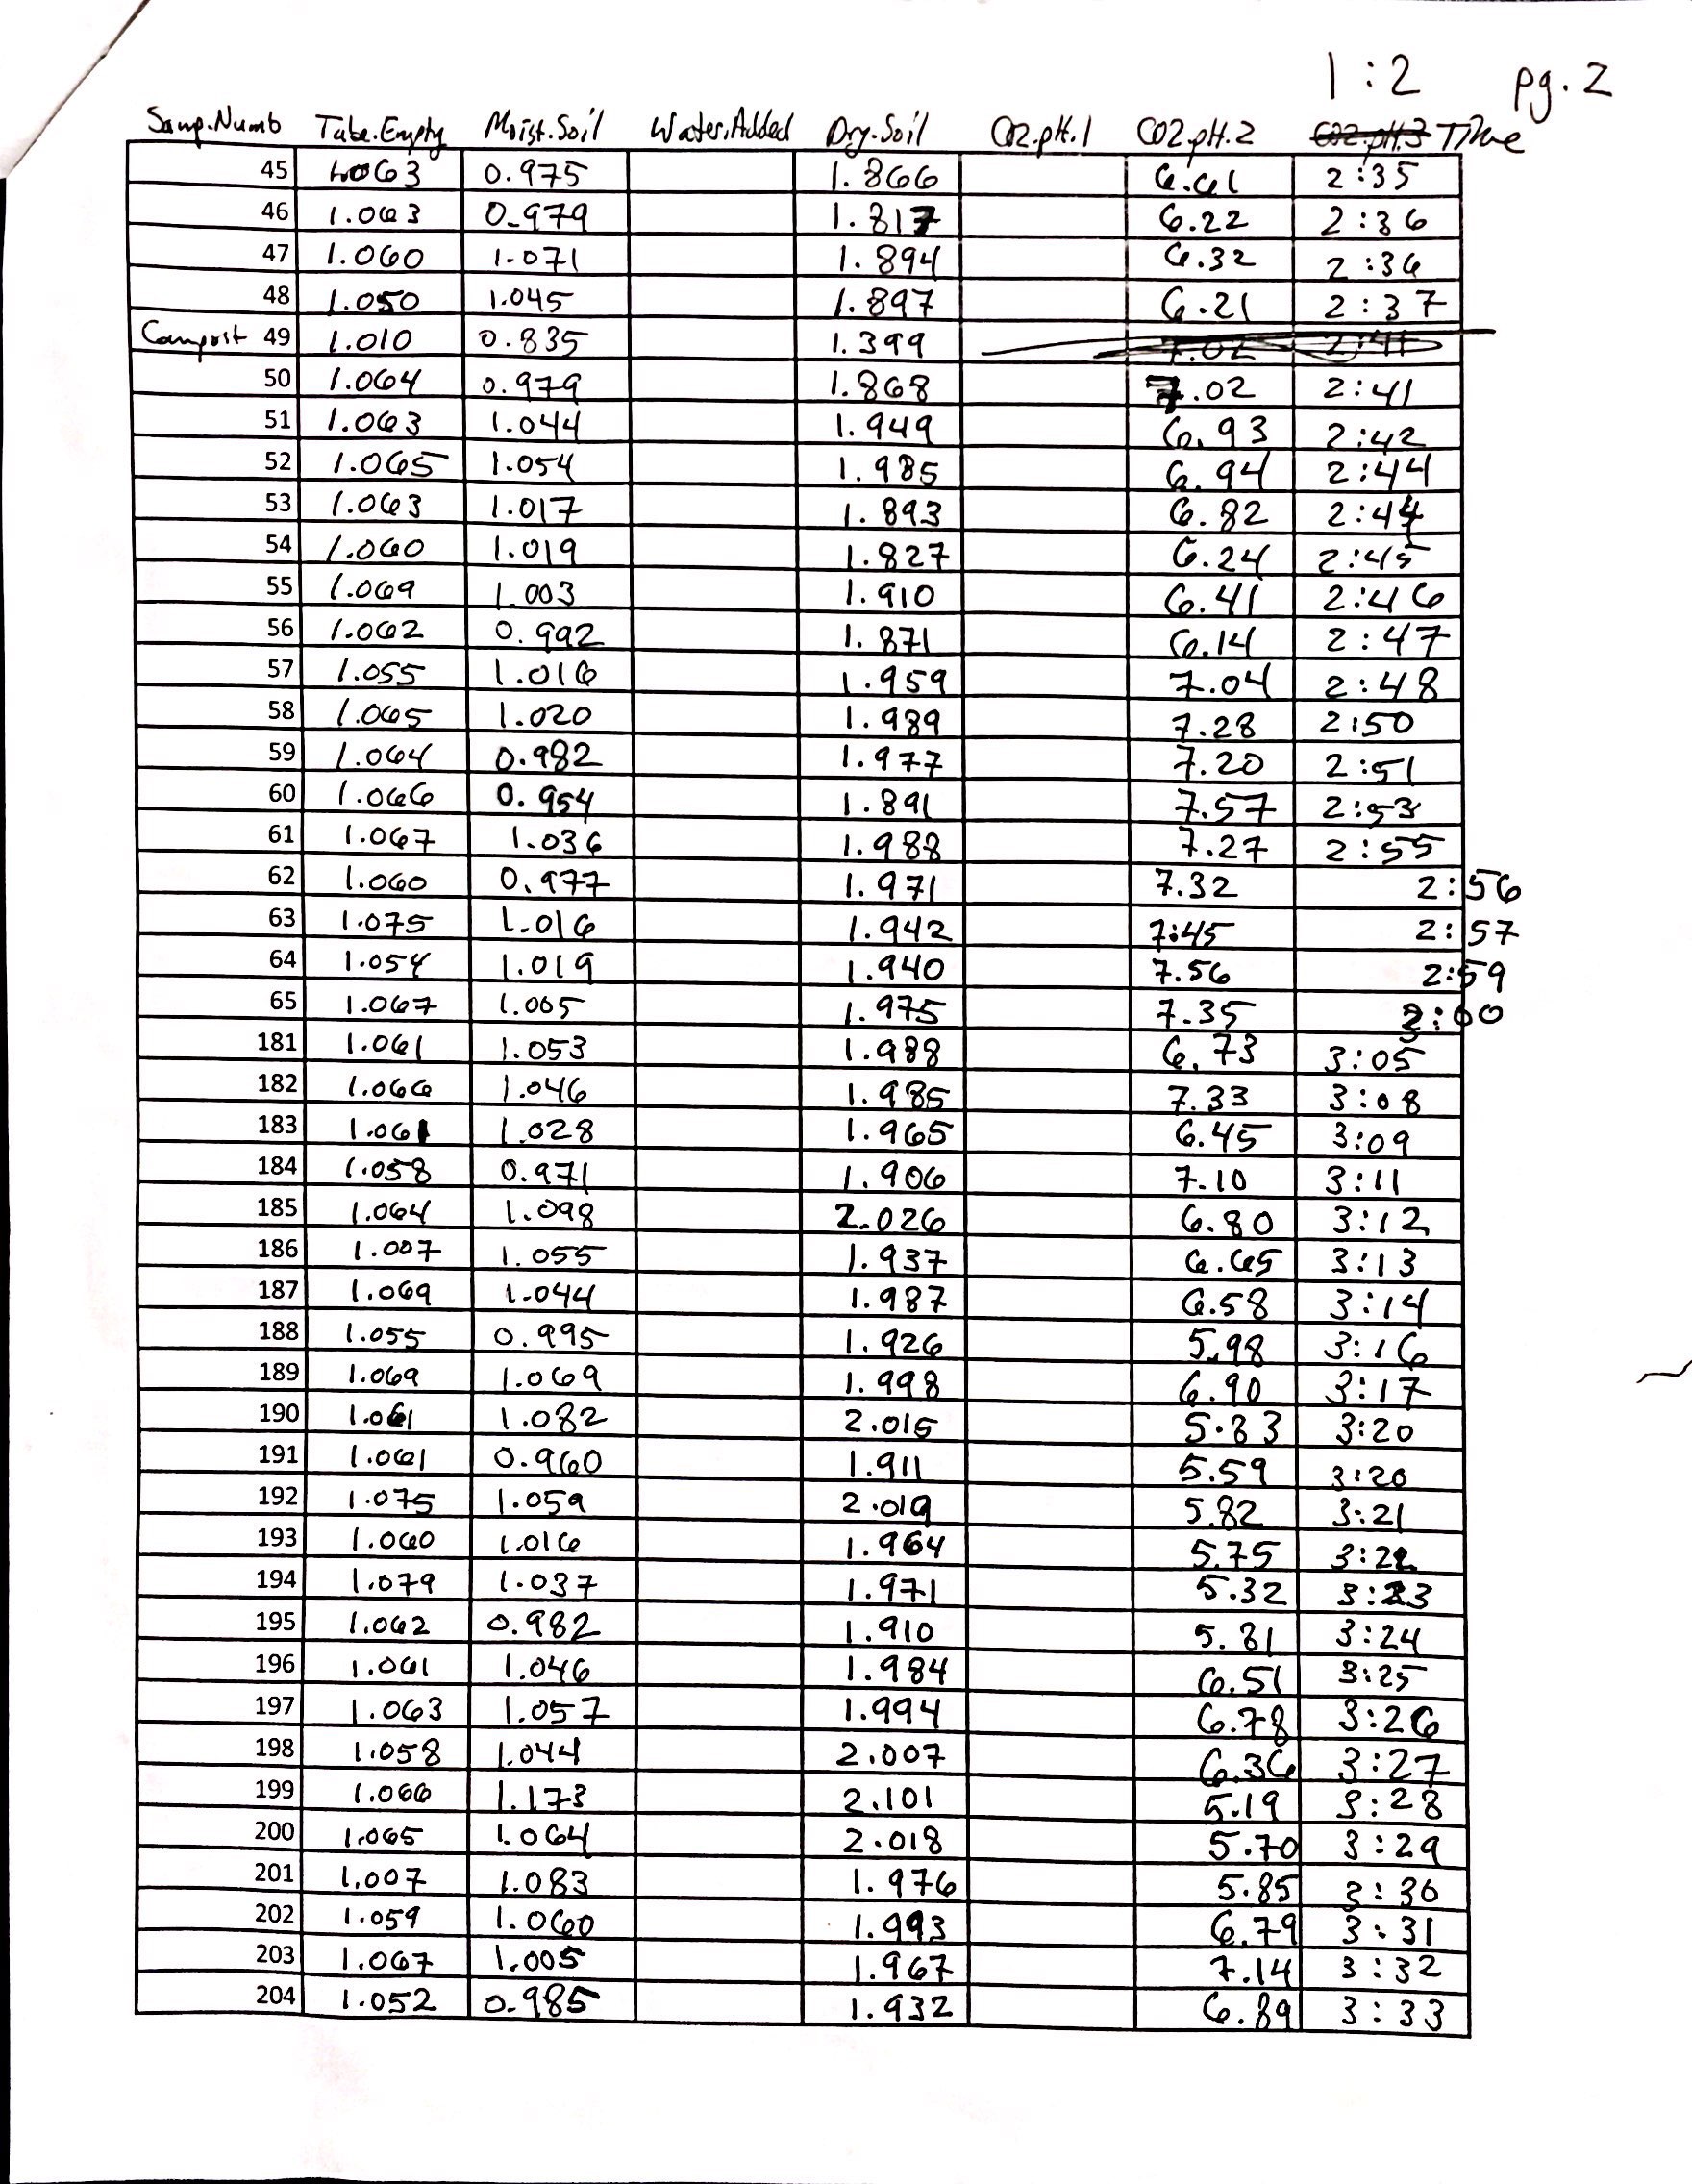 1:2 pg. 2
Samp.Numb Tube.Empty Moist.Soil Water.Added Dry.Soil CO2.pH.1 CO2.pH.2 CO2.pH.3 Time
45 1.063 0.975 1.866 6.61 2:35
46 1.063 0.979 1.817 6.22 2:36
47 1.060 1.071 1.894 6.32 2:36
48 1.050 1.045 1.897 6.21 2:37
Compost 49 1.010 0.835 1.399 7.02 2:41
50 1.064 0.979 1.868 7.02 2:41
51 1.063 1.044 1.949 6.93 2:42
52 1.065 1.054 1.985 6.94 2:44
53 1.063 1.017 1.893 6.82 2:44
54 1.060 1.019 1.827 6.24 2:45
55 1.069 1.003 1.910 6.41 2:46
56 1.062 0.992 1.871 6.14 2:47
57 1.055 1.016 1.959 7.04 2:48
58 1.065 1.020 1.989 7.28 2:50
59 1.064 0.982 1.977 7.20 2:51
60 1.066 0.954 1.891 7.57 2:53
61 1.067 1.036 1.988 7.27 2:55
62 1.060 0.977 1.971 7.32 2:56
63 1.075 1.016 1.942 7:45 2:57
64 1.054 1.019 1.940 7.56 2:59
65 1.067 1.005 1.975 7.35
181 1.061 1.053 1.988 6.73 3:05
182 1.066 1.046 1.985 7.33 3:08
183 1.061 1.028 1.965 6.45 3:09
184 1.058 0.971 1.906 7.10 3:11
185 1.064 1.098 2.026 6.80 3:12
186 1.007 1.055 1.937 6.65 3:13
187 1.069 1.044 1.987 6.58 3:14
188 1.055 0.995 1.926 5.98 3:16
189 1.069 1.069 1.998 6.90 3:17
190 1.061 1.082 2.015 5.83 3:20
191 1.061 0.960 1.911 5.59 3:20
192 1.075 1.059 2.019 5.82 3:21
193 1.060 1.016 1.964 5.75 3:22
194 1.079 1.037 1.971 5.32 3:23
195 1.062 0.982 1.910 5.81 3:24
196 1.061 1.046 1.984 6.51 3:25
197 1.063 1.057 1.994 6.78 3:26
198 1.058 1.044 2.007 6.36 3:27
199 1.066 1.173 2.101 5.19 3:28
200 1.065 1.064 2.018 5.70 3:29
201 1.007 1.083 1.976 5.85 3:30
202 1.059 1.060 1.993 6.79 3:31
203 1.067 1.005 1.967 7.14 3:32
204 1.052 0.985 1.932 6.89 3:33